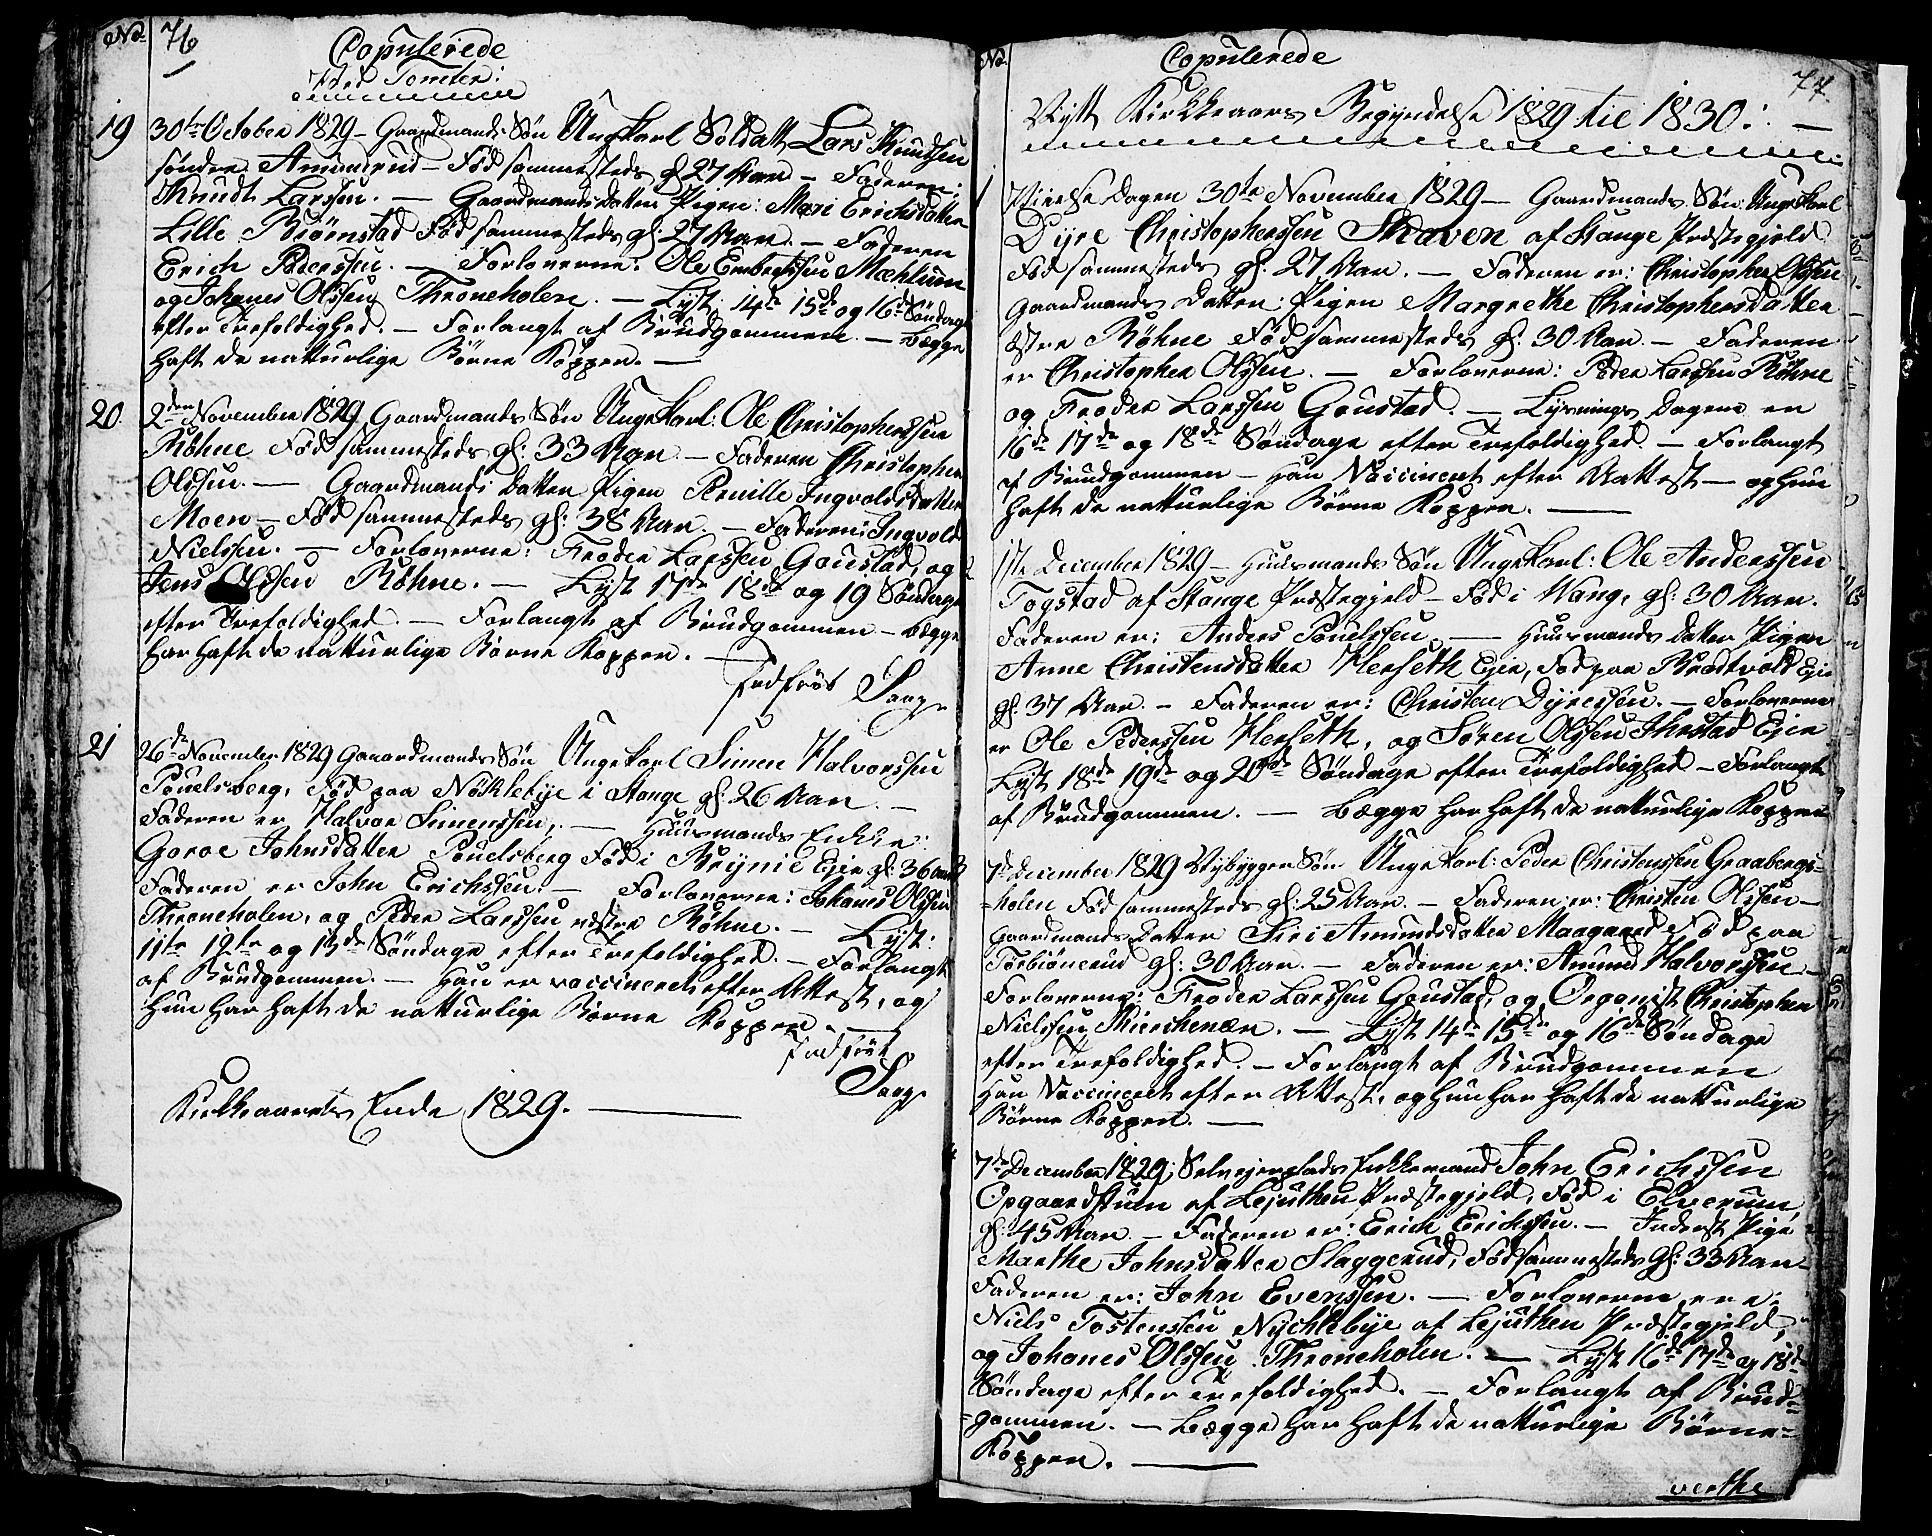 No. 76
Copulerede
Ved Tomter:
19 30te October 1829 – Gaardmands Søn Ungekarl Soldatt Lars Knudtsen
søndre Amundrud – Fød sammesteds gl: 27 Aar – Faderen:
Knudt Larssen. — Gaardmands Datter Pigen: Mari Erichsdatter
Lille Biørnstad Fød sammesteds gl: 27 Aar. – Faderen
Erich Pederssen. — Forloverne: Ole Embretssen Mæhlum
og Johanes Olssen Throneholen. — Lyst: 14de 15de og 16de Søndage
efter Trefoldighed. – Forlangt af Brudgommen. – Begge
haft de natturlige Børne Kopper. —
20. 2den November 1829 Gaardmands Søn Ungekarl: Ole Christopherssen
Røhne Fød sammesteds gl: 33 Aar – Faderen Christopher
Olssen. — Gaardmands Datter Pigen Pernille Ingvoldsdatter
Moen – Fød sammesteds gl: 38 Aar. – Faderen: Ingvold
Nielssen. — Forloverne: Frøder Larssen Goustad, og
Jens Olssen Røhne. — Lyst 17de 18de og 19 Søndage
efter Trefoldighed. — Forlangt af Brudgommen – begge
har haft de natturlige Børne Kopper. —
Indført
21 26de November 1829 Gaardmands Søn Ungekarl Simen Halvorssen
Pouelsberg, Fød paa Nøklebye i Stange gl: 26 Aar. —
Faderen er Halvor Simenssen, — Huusmands Enkke:
Goroe Johnsdatter Pouelsberg Fød i Brynie Eje gl: 36 Aar
Faderen er John Erichssen. – Forloverne: Johanes Olssen
Throneholen, og Peder Larssen østre Røhne. — Lyst:
11te 12te og 13de Søndage efter Trefoldighed. – Forlangt
af Brudgommen. – Han er vaccineret efter Attest, og
hun har haft de natturlige Børne Kopper. —
Indført
Kirkkeaarets Ende 1829. —
No. 77.
Copulerede
Nytt Kirkkeaars Begyndelse 1829 til 1830:. —
1 Vielse Dagen 30te November 1829 – Gaardmands Søn: Ungekarl
Dyre Christopherssen Skaven af Stange Præstegjeld
Fød sammesteds gl: 27 Aar. — Faderen er: Christopher Olssen
Gaardmands Datter: Pigen Margrethe Christophersdatter
østre Røhne Fød sammesteds gl: 30 Aar. – Faderen
er Christopher Olssen. — Forloverne: Peder Larssen Røhne
og Frøder Larssen Goustad. — Lysnings Dagene er
16de 17de og 18de Søndage efter Trefoldighed. – Forlangt
af Brudgommen – Han Vaccineret efter Aattest – og hun
haft de natturlige Børne Kopper. —
2 1ste December 1829 – Huusmands Søn Ungekarl: Ole Anderssen
Togstad af Stange Præstegjeld – Fød i Wang, gl: 30 Aar.
Faderen er: Anders Pouelssen. — Huusmands Datter Pigen
Anne Christensdatter Herseth Eje, Fød paa Brodtvold Eje
gl: 37 Aar. – Faderen er: Christen Dyressen. – Forloverne
er Ole Pederssen Herseth, og Søren Olssen Ihrstad Eje
Lyst 18de 19de og 20de Søndage efter Trefoldighed – Forlangt
af Brudgommen. — Begge har haft de natturlige Kopper
3 7de December 1829 Nybygger Søn Ungekarl: Peder Christenssen Graabergs-
-holen Fød sammesteds gl: 25 Aar. – Faderen er: Christen Olssen –
Gaardmands Datter Siri Amundsdatter Maagaard Fød paa
Torbiönerud gl: 30 Aar. – Faderen er: Amund Halvorssen –
Forloverne: Frøder Larssen Goustad, og Organist Christopher
Nielssen Kierchenær. — Lyst 14de 15de og 16de Søndage
efter Trefoldighed. – Forlangt af Brudgommen
Han Vaccineret efter Attest, og hun har haft de natturlige
Børne Kopper. —
7de December 1829, Selvejerplads Enkkemand John Erichssen
Opgaardstuen af Lejuthen Præstegjeld, Fød i Elverum,
gl: 45 Aar. – Faderen er: Erich Erichssen. – Inderst Pige
Marthe Johnsdatter Slaggerud, Fød sammesteds gl: 33 Aar –
Faderen er: John Evenssen. – Forloverne ere:
Niels Tostenssen Nychlebye af Lejuthen Præstegjeld,
og Johanes Olssen Throneholen. — Lyst 16de 17de og 18de
Søndage efter Trefoldighed. – Forlangt af Brud-
-gommen. – Begge har haft de natturlige Børne-
Kopper. —
verthe